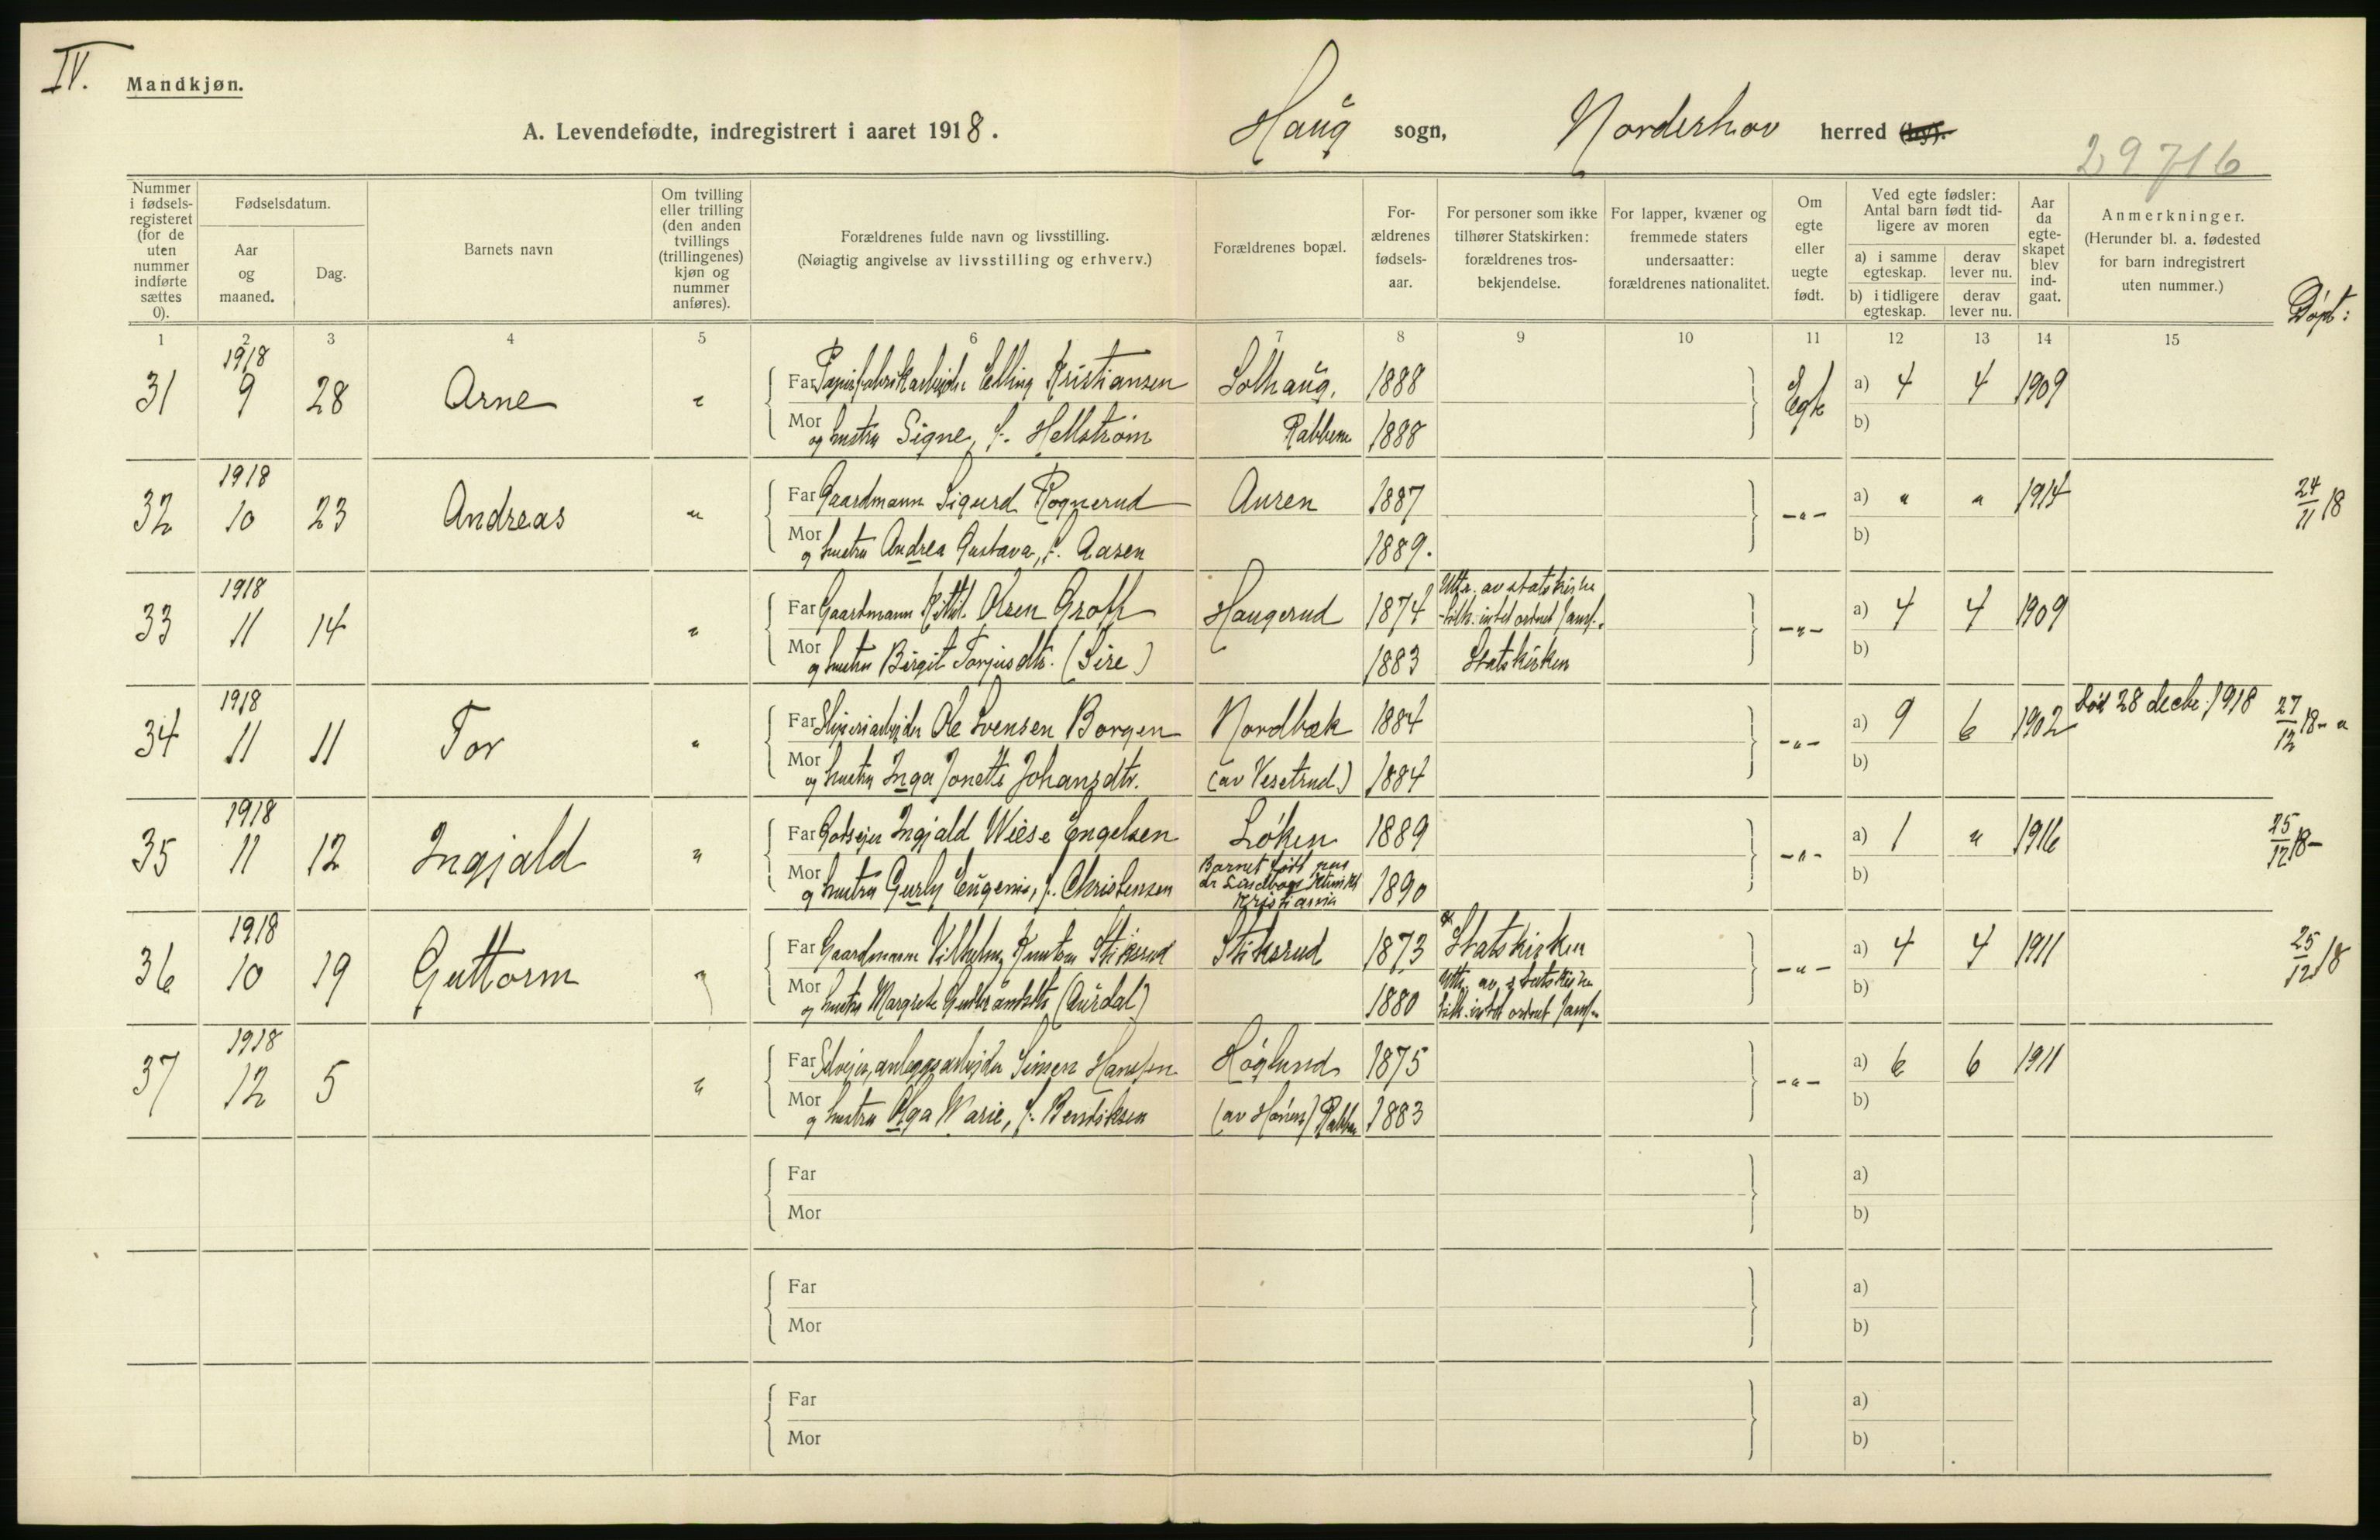 IV.
Mandkjøn.
A. Levendefødte, indregistrert i aaret 1918. Haug sogn, Norderhov herred (by).
29716
Nummer i fødselsregisteret (for de uten nummer indførte sættes 0).
Fødselsdatum.
Aar og maaned.
Dag.
Barnets navn
Om tvilling eller trilling (den anden tvillings (trillingenes) kjøn og nummer anføres).
Forældrenes fulde navn og livsstilling.
(Nøiagtig angivelse av livsstilling og erhverv.)
Forældrenes bopæl.
Forældrenes fødselsaar.
For personer som ikke tilhører Statskirken: forældrenes trosbekjendelse.
For lapper, kvæner og fremmede staters undersaatter: forældrenes nationalitet.
Om egte eller uegte født.
Ved egte fødsler: Antal barn født tidligere av moren
a) i samme egteskap. derav lever nu.
b) i tidligere egteskap. derav lever nu.
Aar da egteskapet blev indgaat.
Anmerkninger.
(Herunder bl. a. fødested for barn indregistrert uten nummer.)
Døpt:
1 2 3 4 5 6 7 8 9 10 11 12 13 14 15
1918
31 9 28 Arne " Far Papirfabrikarbeider Elling Kristiansen Solhaug, 1888 Egte a) 4 4 1909
Mor og hustru Signe, f. Hellstrøm 1888 b)
1918
32 10 23 Andreas " Far Gaardmann Sigurd Rognerud Auren 1887 -"- a) " " 1914 24/11 18
Mor og hustru Andrea Gustava, f. Aasen 1889. b)
1918
33 11 14 " Far Gaardmann Kittil Olsen Groth Haugerud 1874 Uttr. av statskirke -"- a) 4 4 1909
tilh. intet ordnet samf.
Mor og hustru Birgit Torjusdtr. (Sire) 1883 Statskirken b)
1918
34 11 11 Tor " Far Sliperiarbeider Ole Svensen Borgen Nordbæk 1884 -"- a) 9 6 1902 død 28 decbr. 1918 27/12 18- "
Mor og hustru Inga Jonette Johansdtr. (av Vesetrud) 1884 b)
1918
35 11 12 Ingjald " Far Godseier Ingjald Wiese Engelsen Løken 1889 -"- a) 1 " 1916 25/12 18-
Mor og hustru Gurly Eugenie, f. Christensen Barnet født paa dr Klinikk Kristiania 1890 b)
1918
36 10 19 Guttorm " Far Gaardmann Vilhelm Knutsen Stiksrud Stiksrud 1873 Statskirken -"- a) 4 4 1911 25/12 18
Mor og hustru Margrete Gulbrandsdtr. (Aurdal) 1880 Uttr. av statskirke b)
tilh. intet ordnet samf.
1918
37 12 5 " Far Selveier, anleggsarbeider Simen Hansen Høglund 1875 -"- a) 6 6 1911
Mor og hustru Olga Marie, f. Bendiksen (av Hønen) 1883 b)
Far a)
Mor b)
Far a)
Mor b)
Far a)
Mor b)